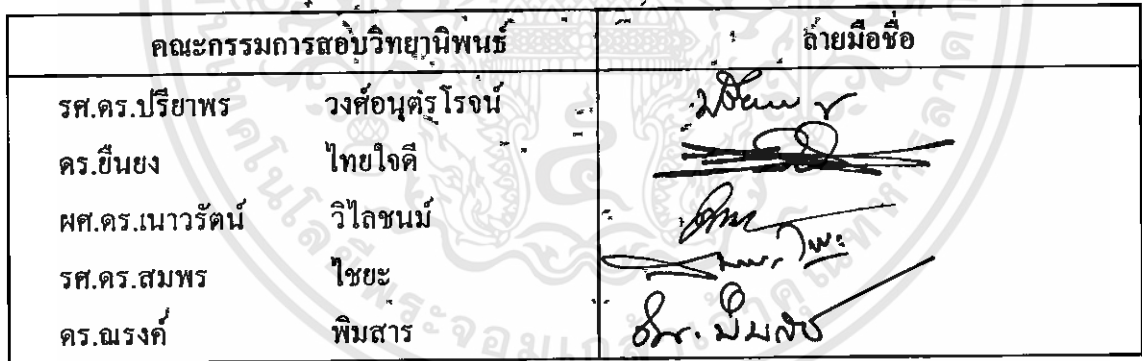 คณะกรรมการสอบวิทยานิพนธ์ ลายมือชื่อ
รศ.ดร.ปรียาพร วงศ์อนุตรโรจน์
ดร.ยืนยง ไทยใจดี
ผศ.ดร.เนาวรัตน์ วิไลชนม์
รศ.ดร.สมพร ไชยะ
ดร.ณรงค์ พิมสาร